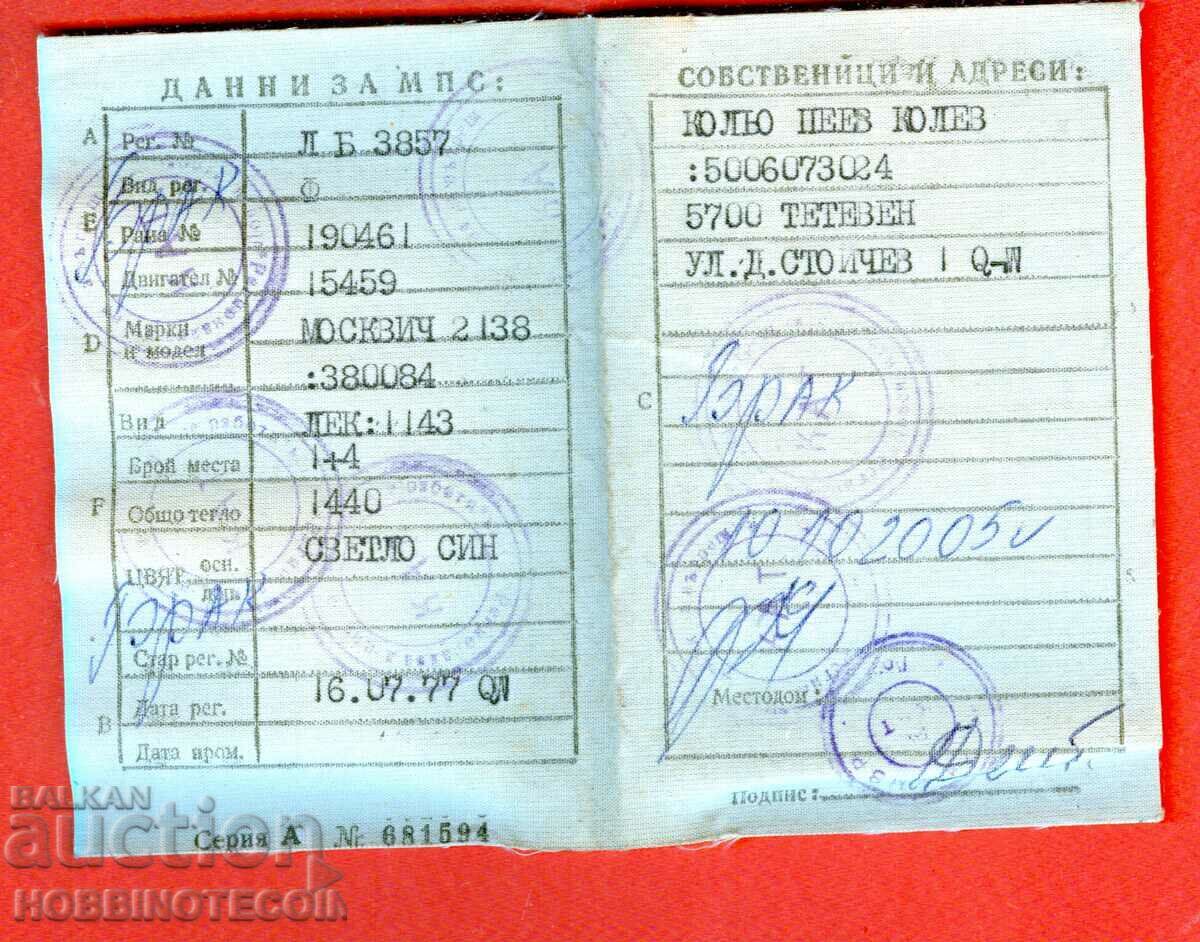 ДАННИ ЗА МПС:
А
Рег. №
Л Б 3857
Вид рег.
Ф
Е
Рама №
190461
Двигател №
15459
D
Марки и модел
МОСКВИЧ 2138
:380084
Вид
ЛЕК:1143
Брой места
1+4
F
Общо тегло
1440
ЦВЯТ
осн.
СВЕТЛО СИН
доп.
Стар рег. №
В
Дата рег.
16.07.77
Дата пром.
Брак
Брак
Серия А № 681594
СОБСТВЕНИЦИ И АДРЕСИ:
КОЛЬО ПЕЕВ КОЛЕВ
:5006073024
5700 ТЕТЕВЕН
УЛ.Д.СТОИЧЕВ 1
С
Брак
10 10 2005
Местодом:
Подпис:
BALKAN
auction
HOBBINOTECOIN